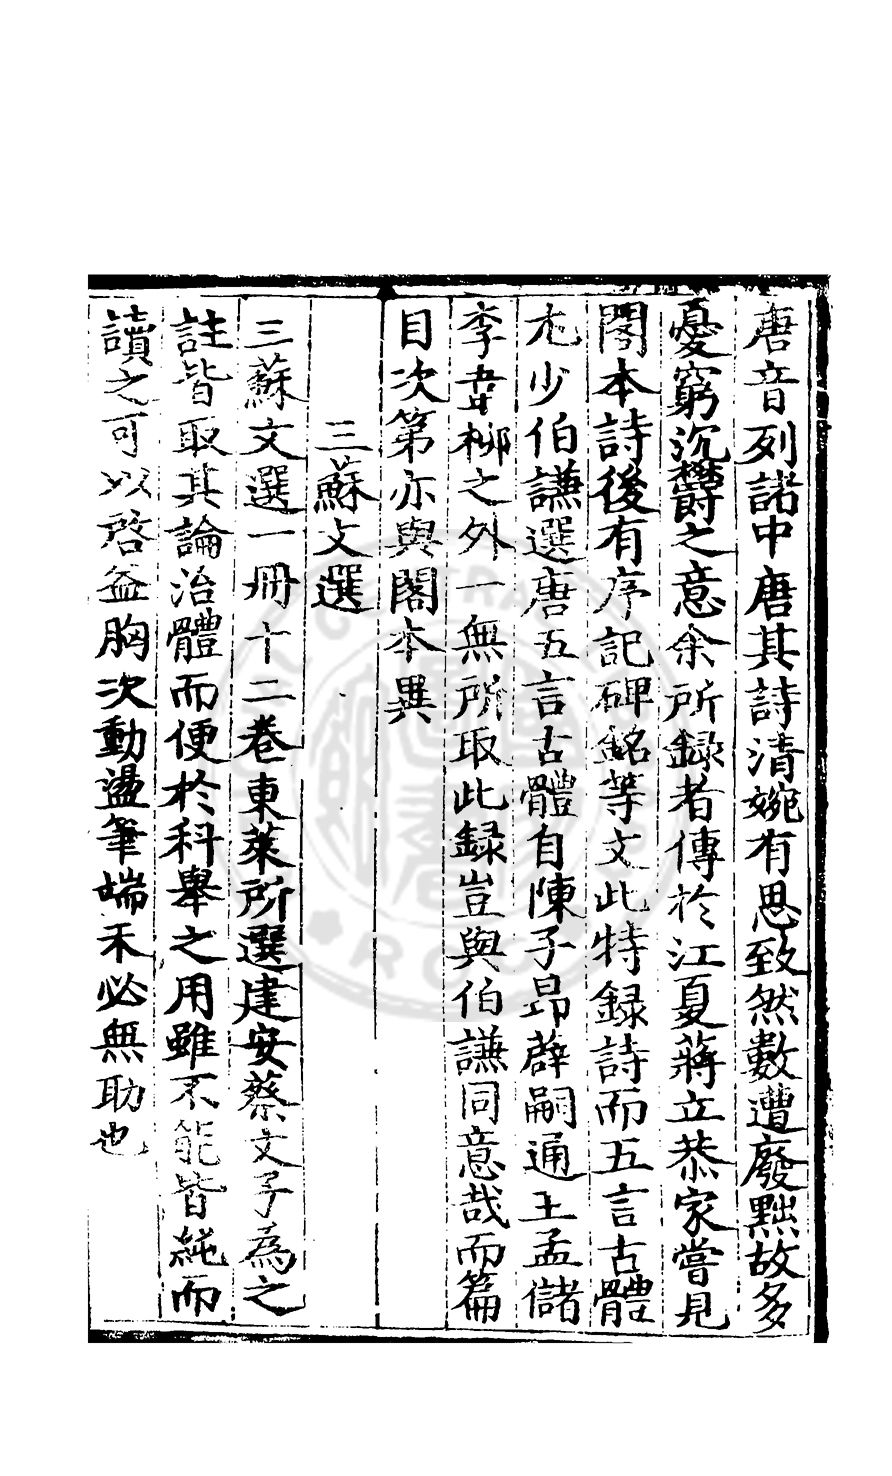 唐音列諸中唐其詩清婉有思致然數遭廢黜故多
憂窮沉欝之意余所録者傳於江夏蔣立恭家嘗見
閣本詩後有序記碑銘等文此特録詩而五言古體
尤少伯謙選唐五言古體自陳子昂薛嗣通王孟儲
李韋柳之外一無所取此録豈與伯謙同意哉而篇
目次第亦與閣本異
三蘇文選
三蘇文選一冊十二卷東萊所選建安蔡文子為之
註皆取其論治體而便於科舉之用雖不能皆純而
讀之可以啓益胸次動盪筆端未必無助也